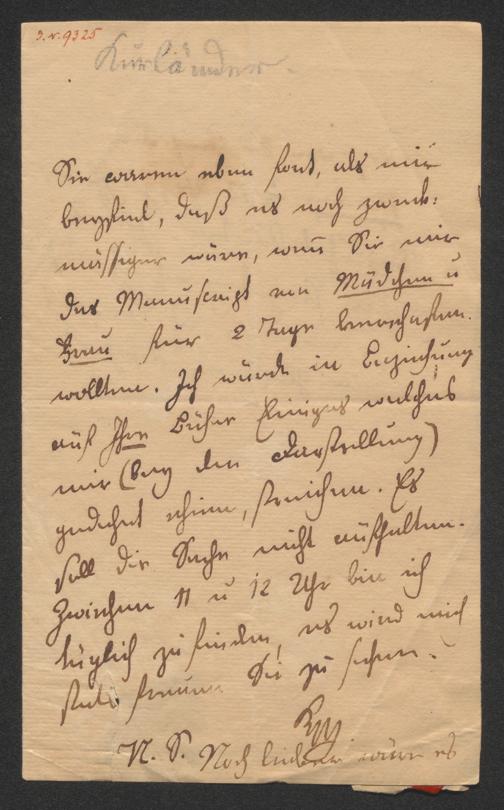 I.N. 9325
Kurländer.
Sie waren eben fort, als mir
beyfiel, daß es noch zweck-
mässiger wäre, wenn Sie mir
das Manuscript von Mädchen u
Frau für 2 Tage
wollten. Ich würde in Beziehung
auf Ihre Bücher Einiges welches
mir (bey der Darstellung)
gedehnt schien, streichen. Es
soll die Sache nicht aufhalten.
Zwischen 11 u 12 Uhr bin ich
täglich zu finden, es wird mich
stets freuen Sie zu sehen.
N. S. Noch lieber wäre es